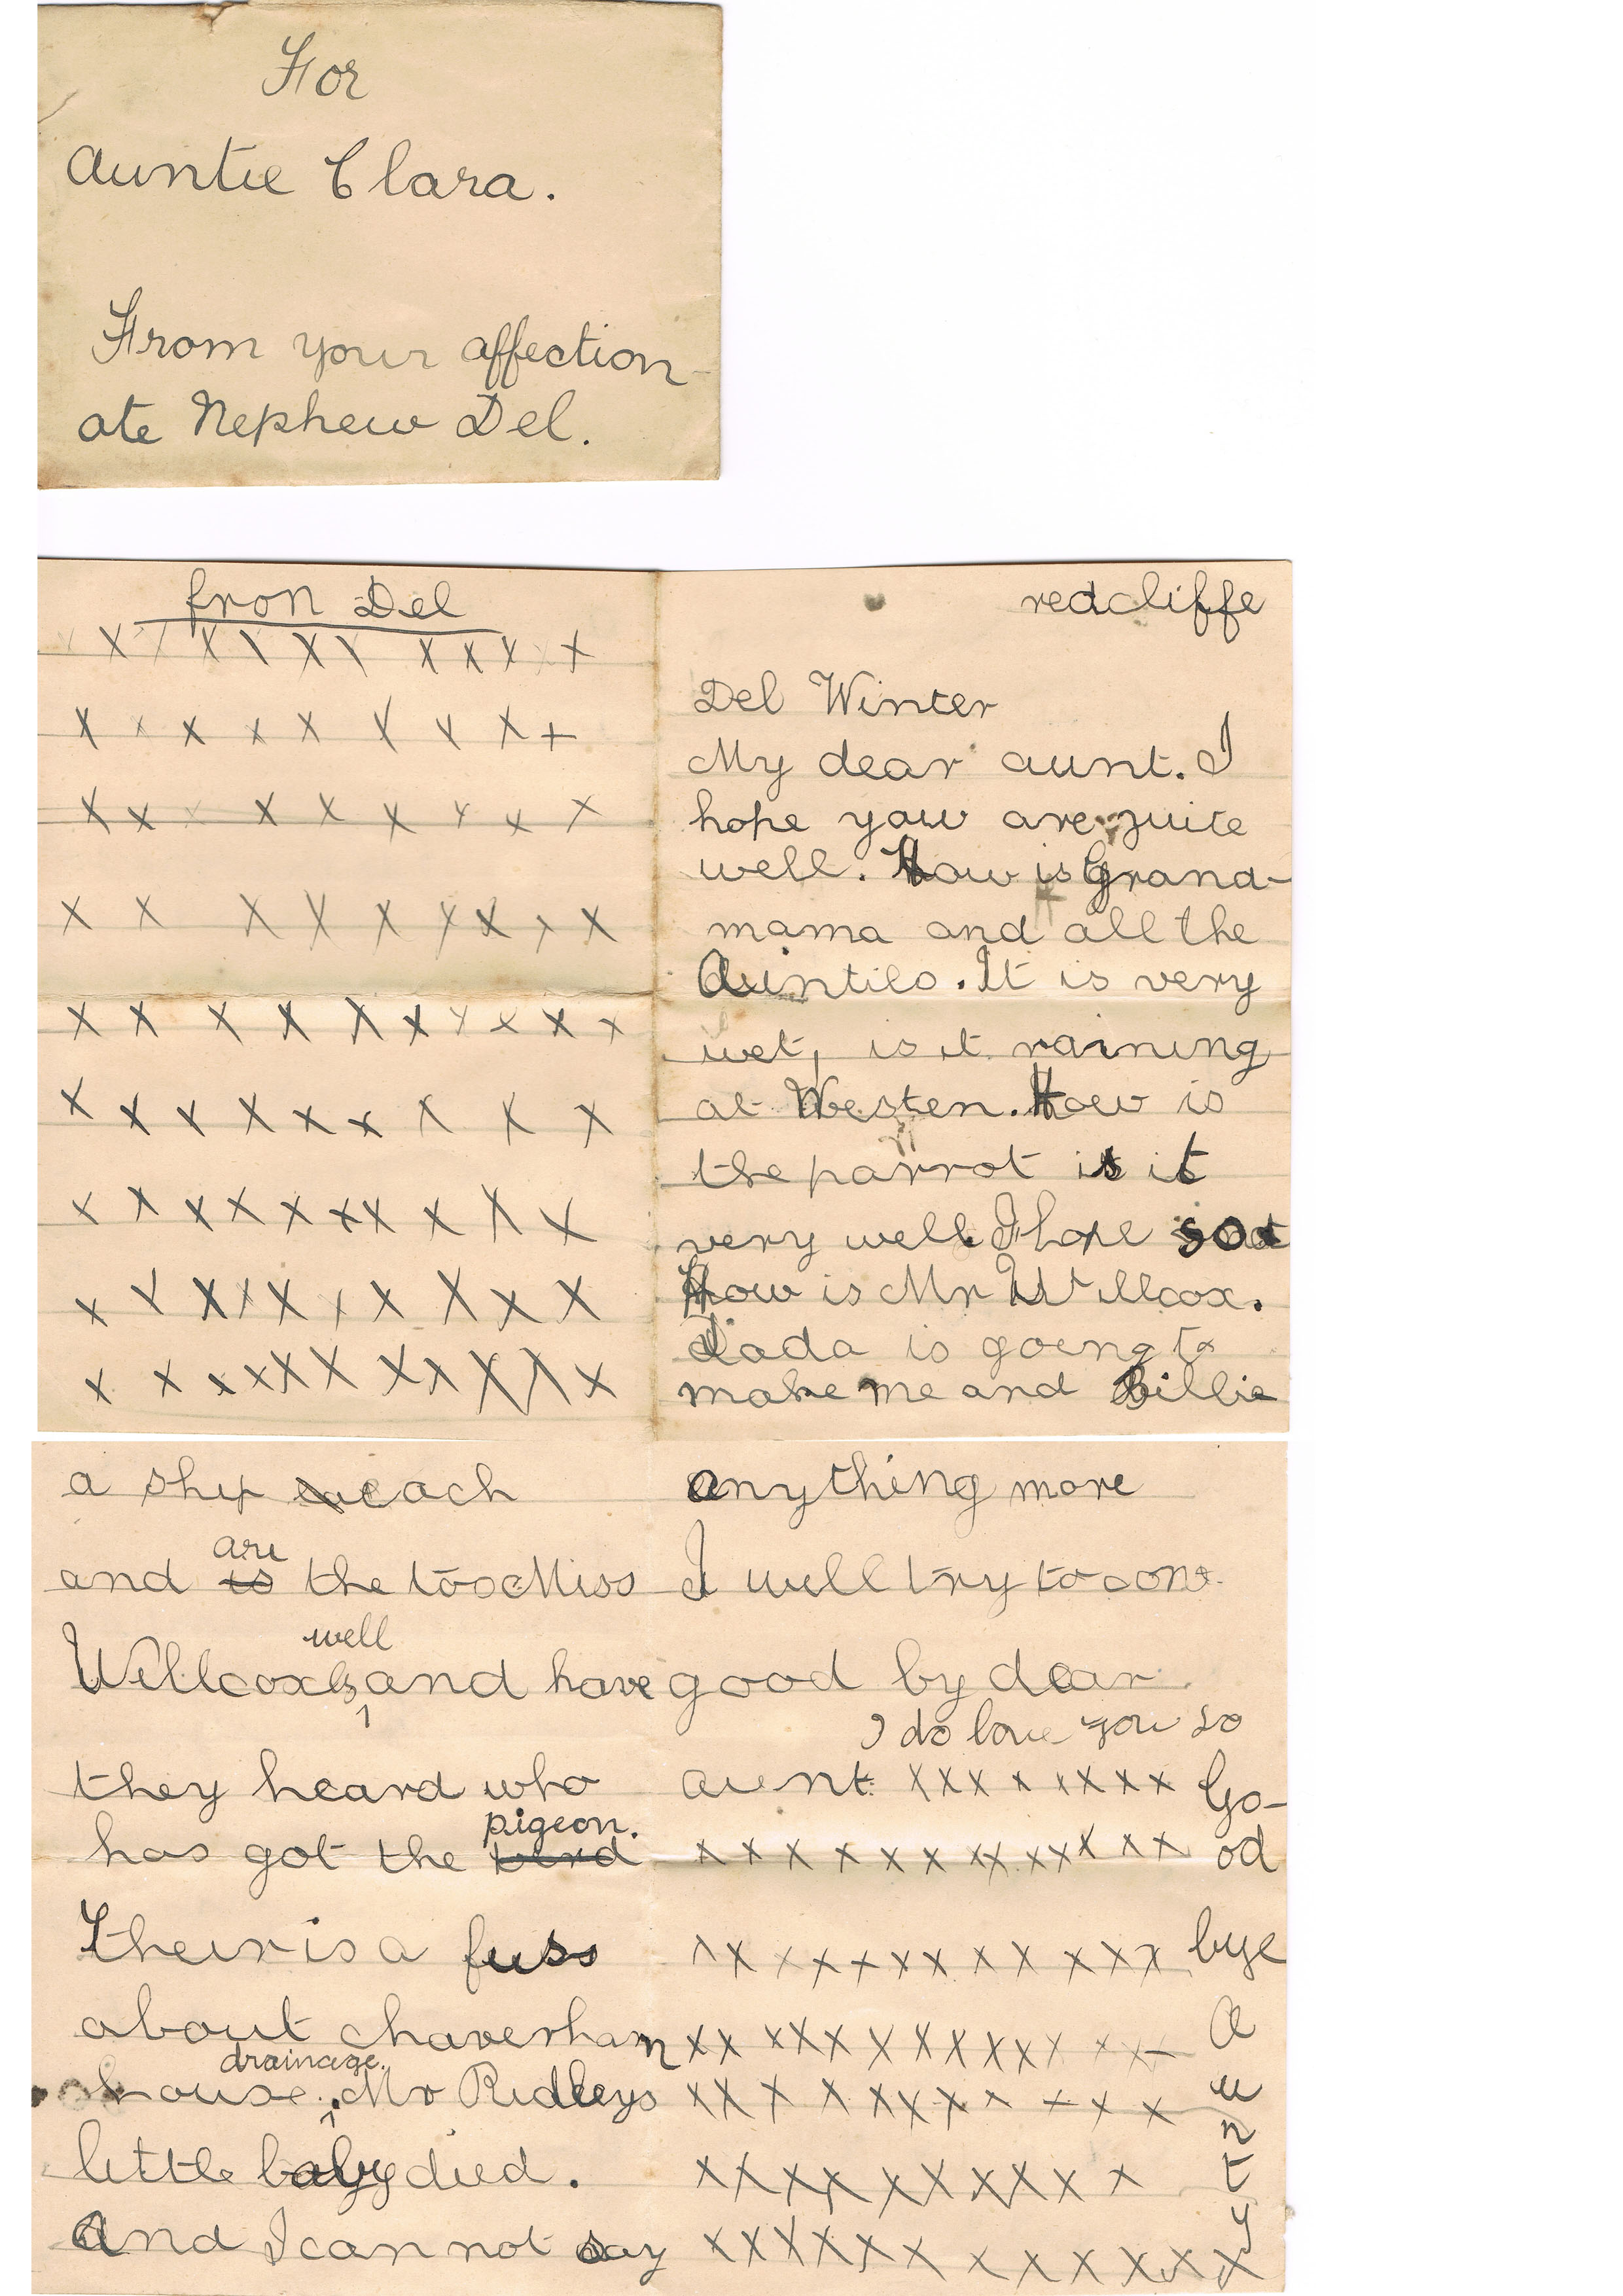 For
Auntie Clara.
From your affection-
ate Nephew Del.
redcliffe
Del Winter
My dear aunt. I
hope yow are quite
well. How is Grand-
mama and all the
Aunties. It is very
wet, is it raining
at Westen. How is
the parrot is it
very well. I hope so
How is Mr Willcox.
Dada is going to
make me and Billie
a ship each
and are the too Miss
Willcoxs well and have
they heard who
has got the pigeon.
Their is a fuss
about chaverham
house drainage. Mr Ridleys
little baby died.
And I can not say
anything more
I will try to
good by dear
I do love you so
aunt. xxx x xxxx Go-
x x x x x x xx xxx x x od
x x x x x x x x x x x x bye
x x x x x x x x x x x x x x A
x x x x x x x x x x x x u
n
x x x x x x x x x x t
x x x x x x x x x x x x x y
fron Del
x x x x x x x x x x x
x x x x x x x x x
x x x x x x x x x
x x x x x x x x x
x x x x x x x x x x
x x x x x x x x x
x x x x x x x x x x
x x x x x x x x x x
x x x x x x x x x x x